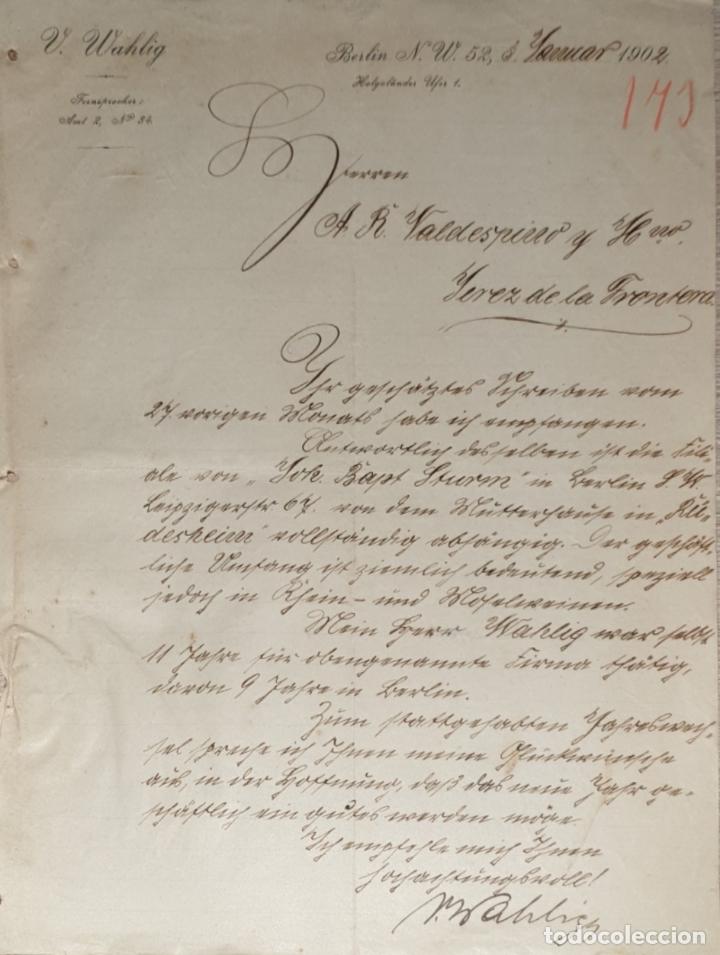 V. Wahlig
Berlin N. W. 52, 8. Januar 1902
Helgoländer Ufer 1.
Fernsprecher:
Amt 2, No 34.
173
Herren
A. R. Valdespino y Hno.
Jerez de la Frontera.
Ihr geschätztes Schreiben vom
27. vorigen Monats habe ich empfangen.
Antwortlich desselben ist die Fili-
ale von „Joh. Bapt Sturm" in Berlin S. W.
Leipzigerstr 67. von dem Mutterhause in „Rü-
desheim" vollständig abhängig. Der geschäft-
liche Umfang ist ziemlich bedeutend, speziell
jedoch in Rhein- und Moselweinen.
Mein Herr Wahlig war selbst
11 Jahre für obengenannte Firma thätig,
davon 9 Jahre in Berlin.
Zum stattgehabten Jahreswech-
sel spreche ich Ihnen meine Glückwünsche
aus, in der Hoffnung, daß das neue Jahr ge-
schäftlich ein gutes werden möge.
Ich empfehle mich Ihnen
hochachtungsvoll!
V. Wahlig
todocoleccion
todocoleccion.net